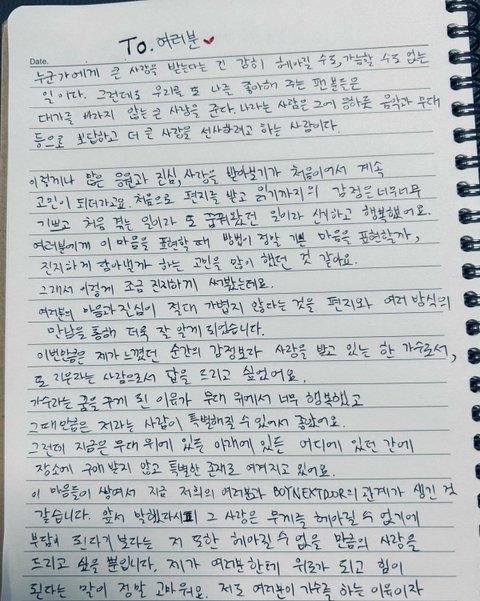 To. 여러분 ♥
Date.
누군가에게 큰 사랑을 받는다는 건 감히 헤아릴 수도, 가늠할 수도 없는
일이다. 그런데도 우리를 또 나를 좋아해 주는 팬분들은
대가를 바라지 않는 큰 사랑을 준다. 나라는 사람은 그에 응하듯 음악과 무대
등으로 보답하고 더 큰 사랑을 선사하려고 하는 사람이다.
이렇게나 많은 응원과 진심, 사랑을 받아보기가 처음이어서 계속
고민이 되더라고요. 처음으로 편지를 받고 읽기까지의 감정은 너무너무
기쁘고 처음 겪는 일이라 또 꿈꿔왔던 일이라 신기하고 행복했어요.
여러분에게 이 마음을 표현할 때 방법이 정말 기쁜 마음을 표현할까,
진지하게 담아낼까 하는 고민을 많이 했던 것 같아요.
그래서 이렇게 조금 진지하게 써봤는데요.
여러분의 마음과 진심이 절대 가볍지 않다는 것을 편지와 여러 방식의
만남을 통해 더욱 잘 알게 되었습니다.
이번만큼은 제가 느꼈던 순간의 감정보다 사랑을 받고 있는 한 가수로서,
또 리우라는 사람으로서 답을 드리고 싶었어요.
가수라는 꿈을 꾸게 된 이유가 무대 위에서 너무 행복했고
그때만큼은 저라는 사람이 특별해질 수 있어서 좋았어요.
그런데 지금은 무대 위에 있든 아래에 있든 어디에 있던 간에
장소에 구애받지 않고 특별한 존재로 여겨지고 있어요.
이 마음들이 쌓여서 지금 저희의 여러분과 BOYNEXTDOOR의 관계가 생긴 것
같습니다. 앞서 말했다시피 그 사랑은 무게를 헤아릴 수 없기에
부담이 된다기보다는 저 또한 헤아릴 수 없을 만큼의 사랑을
드리고 싶을 뿐입니다. 제가 여러분한테 위로가 되고 힘이
된다는 말이 정말 고마워요. 저도 여러분이 가수를 하는 이유이자